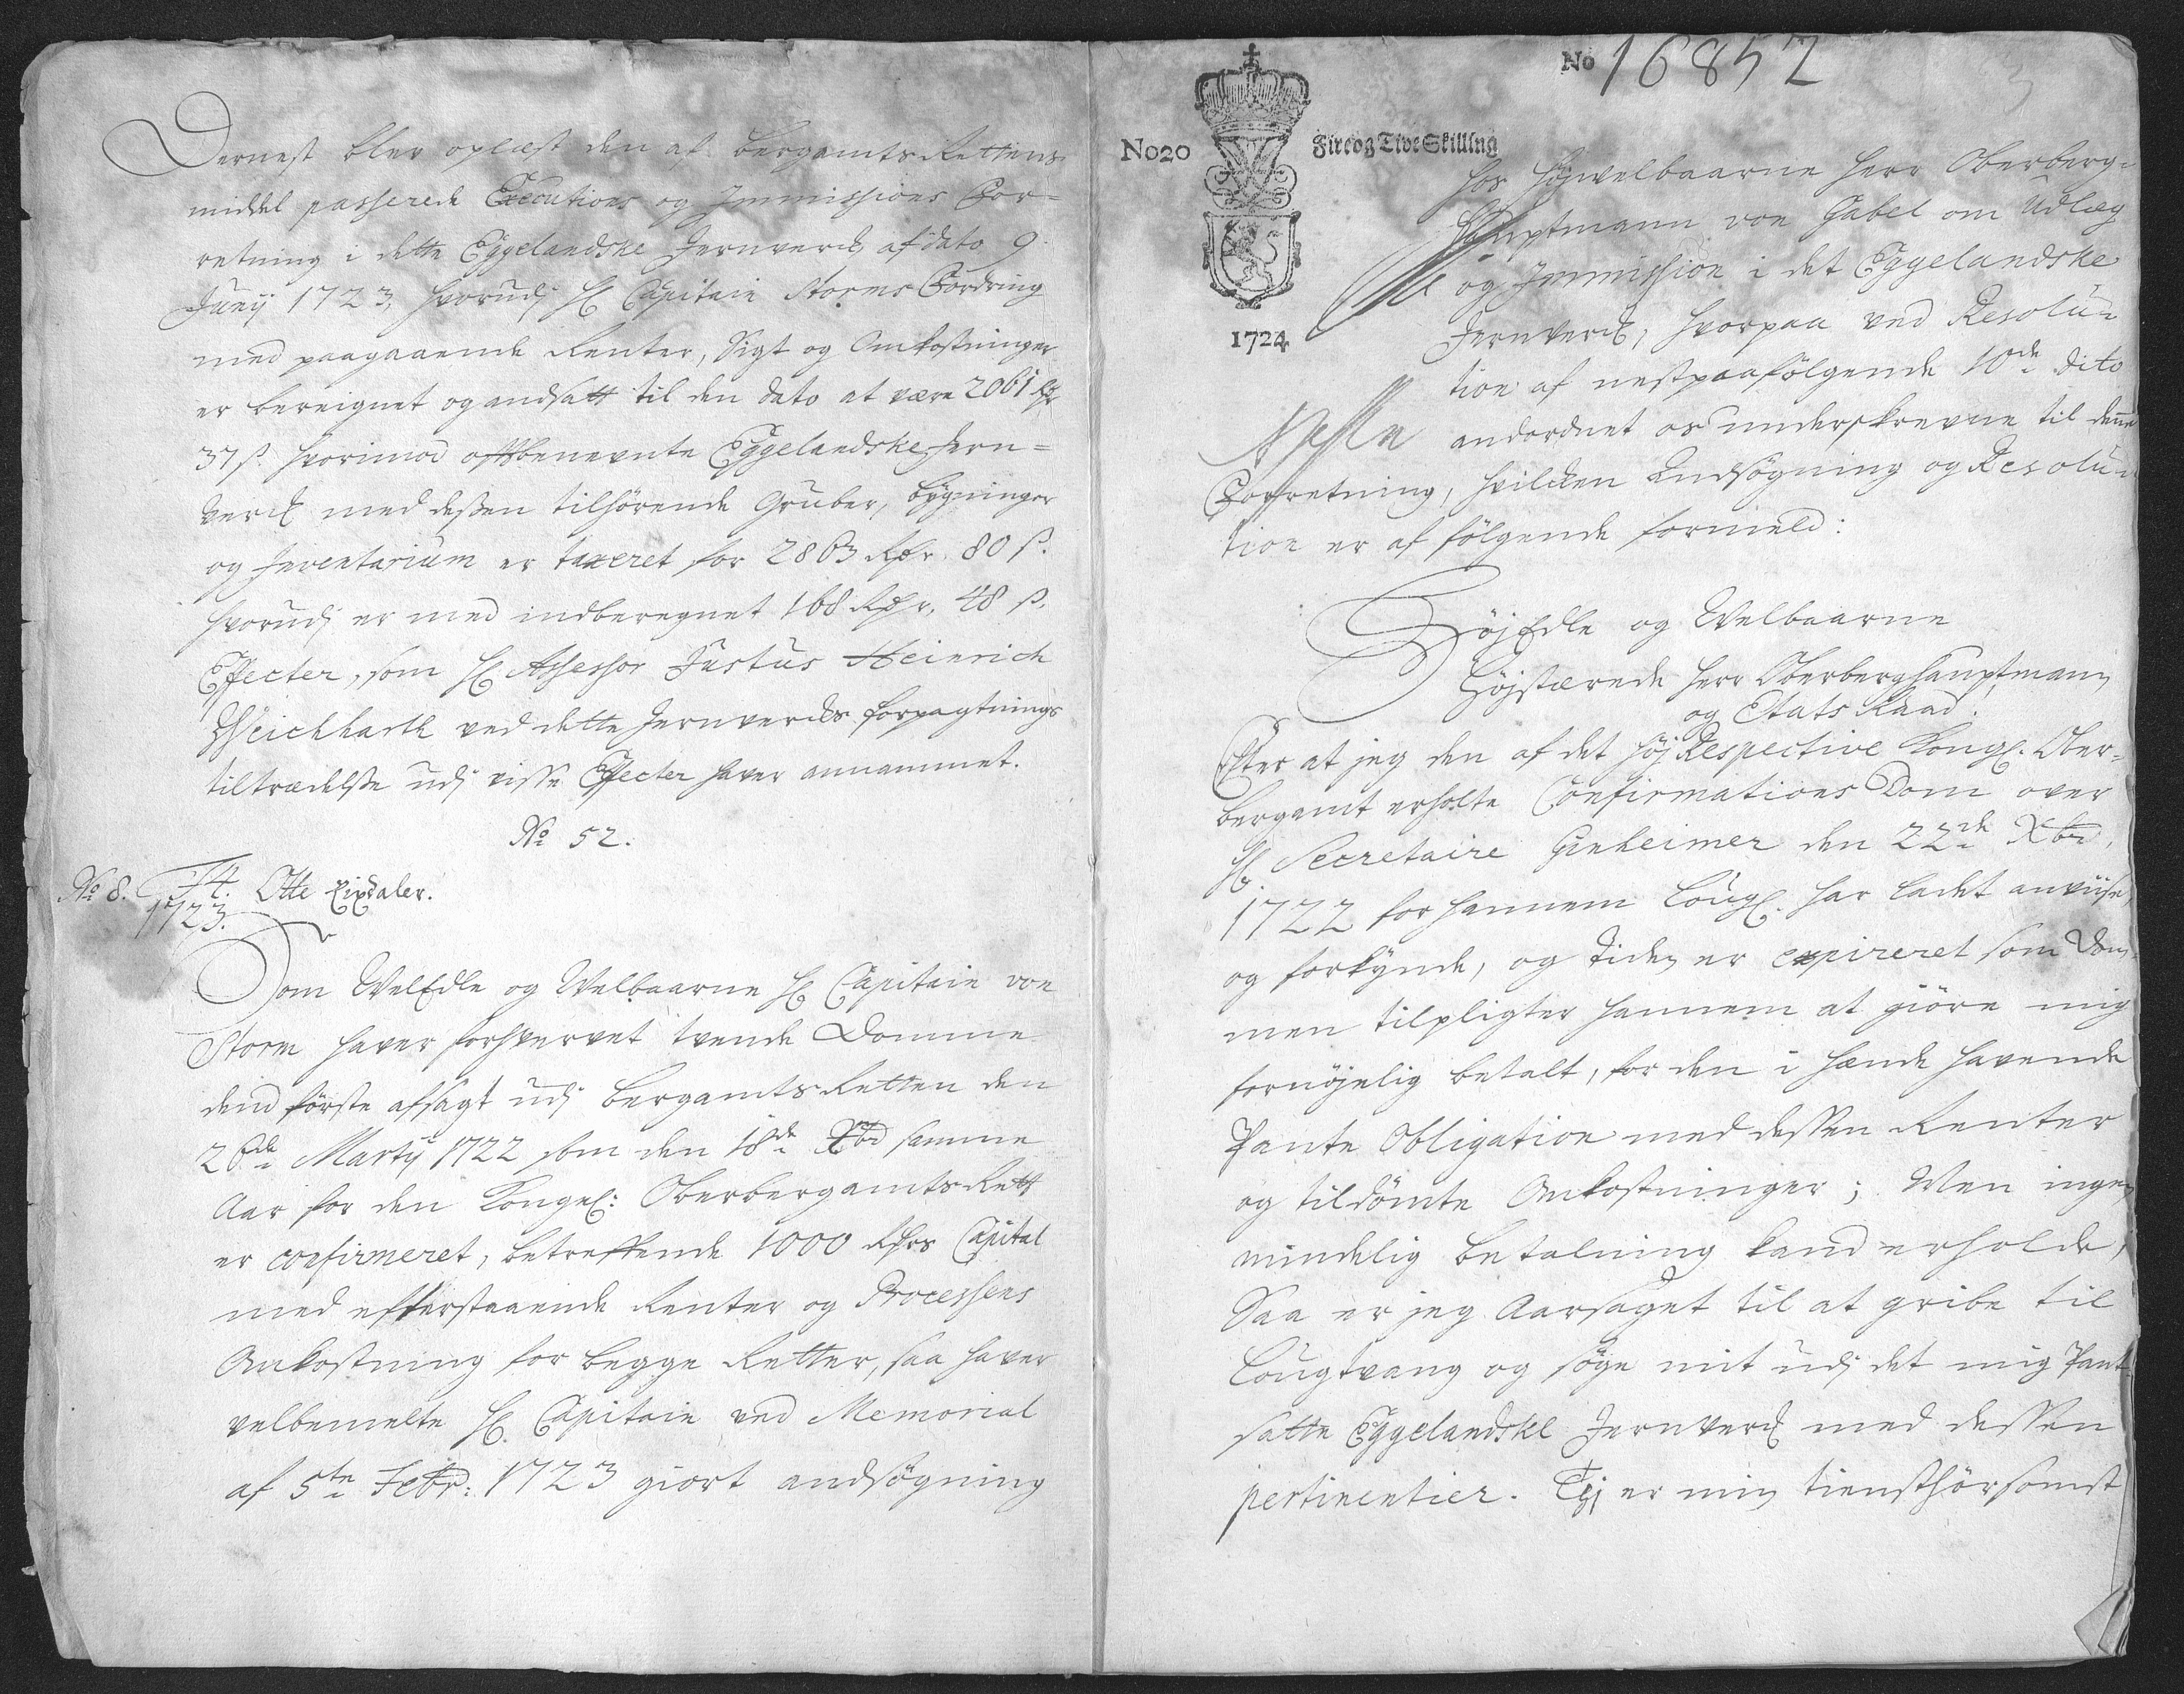 Dernest blev oplæst den af Bergamts Rettens
middel passerede Executions og Immissions For-
retning i dette Eggelandske Jernverck af dato 9
Junij 1723, hvorudj H: Capitain Storms Fordring
med paagaaende Renter, Sigt og Omkostninger
er bereignet og andsatt til den dato at være 2061 Rdr
37 s. hvorimod offtbenevnte Eggelandske Jern-
verck med deßen tilhörende Gruber, bygninger
og Inventarium er taxeret for 2863 Rdr. 80 s.
hvorudj er med indberegnet 168 Rdr. 48 s.
Effecter, som H: Assessor Justus Heinrich
Weichhardt ved dette Jernvercks forpagtnings
tiltrædelße udj visse Effecter haver annammet.
No 52.
No 8. 14. Otte Rixdaler.
1723.
Som WelEdle og Welbaarne H: Capitain von
Storm haver forhvervet tvende Domme
dend förste afsagt udj Bergamts Retten den
26de Martij 1722 som den 18de Xbr samme
Aar for den Kongel: Oberbergamts Rett
er confirmeret, betreffende 1000 Rdrs Capital
med efterstaaende Renter og Processens
Omkostning for begge Retter, saa haver
velbemelte H: Capitain ved Memorial
af 5te Febr: 1723 giort andsögning
No 16852
No20
Fire og Tive Skilling
1724
hos Höjwelbaarne Herr Oberberg-
Hauptmann von Gabel om Udlæg
og Immission i det Eggelandske
Jernverck, hvorpaa ved Resolu-
tion af nestpaafölgende 10de dito
andordnet os underskrevne til denne
Forretning, hvilcken Andsögning og Resolu-
tion er af fölgende formeld:
HöjEdle og Welbaarne
Höjstærede Herr Oberberghauptmann
og Etats Raad.
Efter at jeg den af det höj Respective Kongl. Ober-
bergamt erholte Confirmations Dom over
H: Secretaire Ginheimer den 22de Xbr,
1722 for hannem Lougl. har ladet anviise
og forkynde, og tiden er expireret som Dom-
men tilpligter hannem at giöre mig
fornöjelig betalt, for den i hænde havende
Pante Obligation med dessen Renter
og tildömte Omkostninger; Men ingen
mindelig betalning kand erholde,
Saa er jeg Aarsaget til at gribe til
Lougtvang og söge mit udj det mig Pant-
satte Eggelandske Jernverck med dessen
pertinentier. Tj er min tiensthörsomst